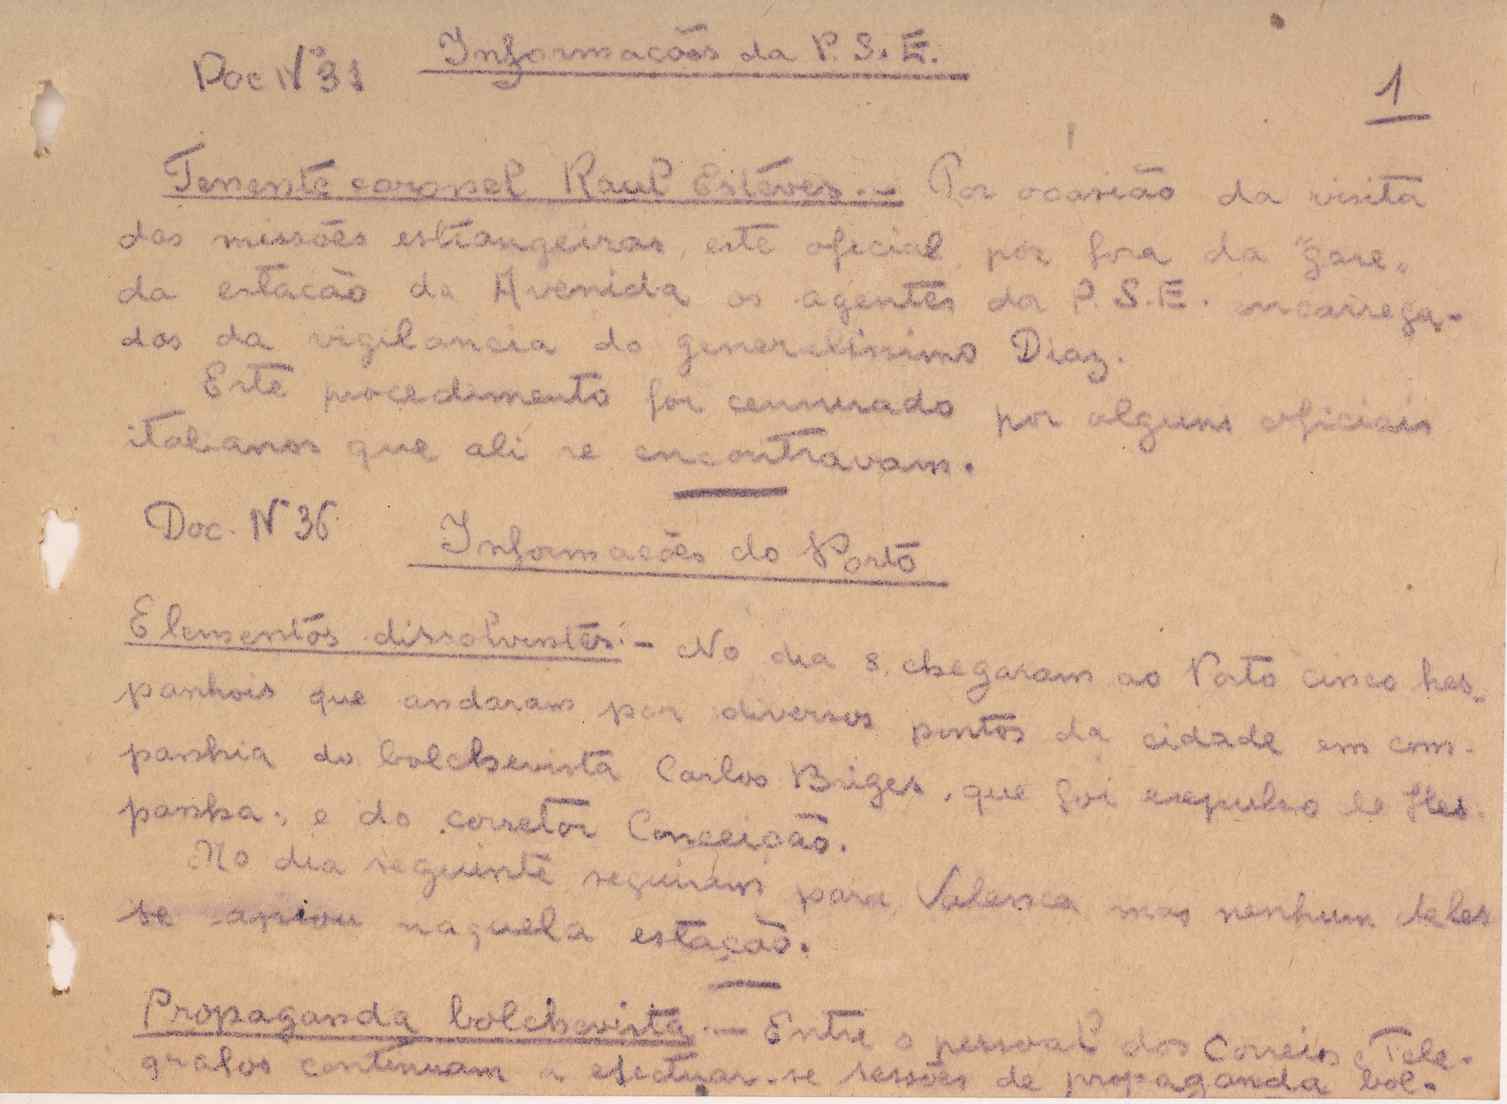 Informações da P. S. E.
Doc Nº 31
1
Tenente coronel Raul Estéves.— Por ocasião da visita
das missões estrangeiras, este oficial, poz fora da "gare„
da estação da Avenida os agentes da P. S. E. encarrega-
dos da vigilancia do generalissimo Diaz.
Este procedimento foi censurado por alguns oficiais
italianos que ali se encontravam.
Doc. Nº 36
Informações do Porto
Elementos dissolventes:— No dia 8, chegaram ao Porto cinco hes-
panhois que andaram por diversos pontos da cidade em com-
panhia do bolchevista Carlos Briges, que foi expulso de Hes-
panha, e do corretor Conceição.
No dia seguinte seguiram para Valença mas nenhum deles
se apiou naquela estação.
Propaganda bolchevista.— Entre o pessoal dos Correios e Tele-
grafos continuam a efectuar-se sessões de propaganda bol-